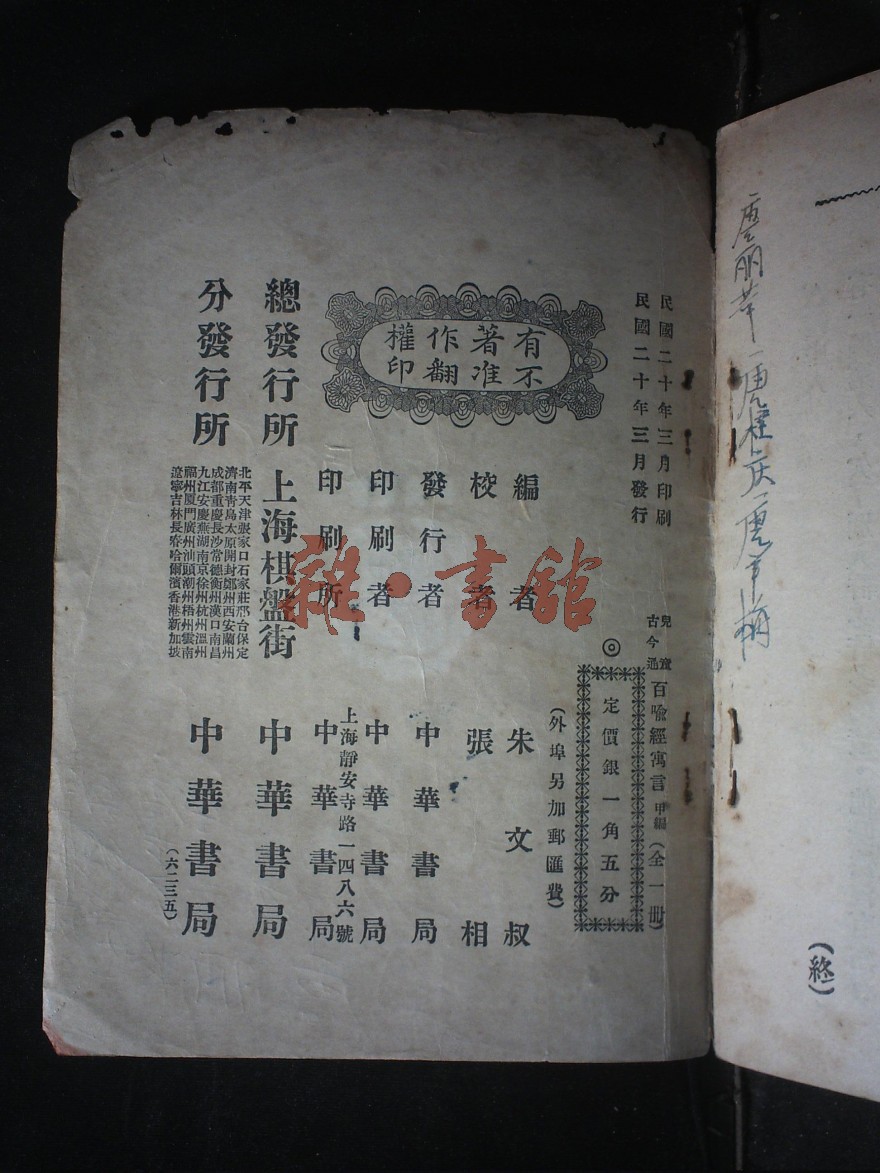 民國二十年三月印刷
民國二十年三月發行
兒童
古今通
百喩經寓言 甲編 (全一册)
◎定價銀一角五分
(外埠另加郵匯費)
有不
著准
作翻
權印
編者 朱文叔
校者 張相
發行者 中華書局
印刷者 中華書局
上海靜安寺路一四八六號
印刷所 中華書局
總發行所 上海棋盤街 中華書局
分發行所
北平天津張家口石家莊邢台保定
濟南青島太原開封鄭州西安蘭州
成都重慶長沙常德衡州漢口南昌
九江安慶蕪湖南京徐州杭州溫州
福州厦門廣州汕頭潮州梧州雲南
遼寧吉林長春哈爾濱香港新加坡
中華書局
(六二三五)
雜·書館
(終)